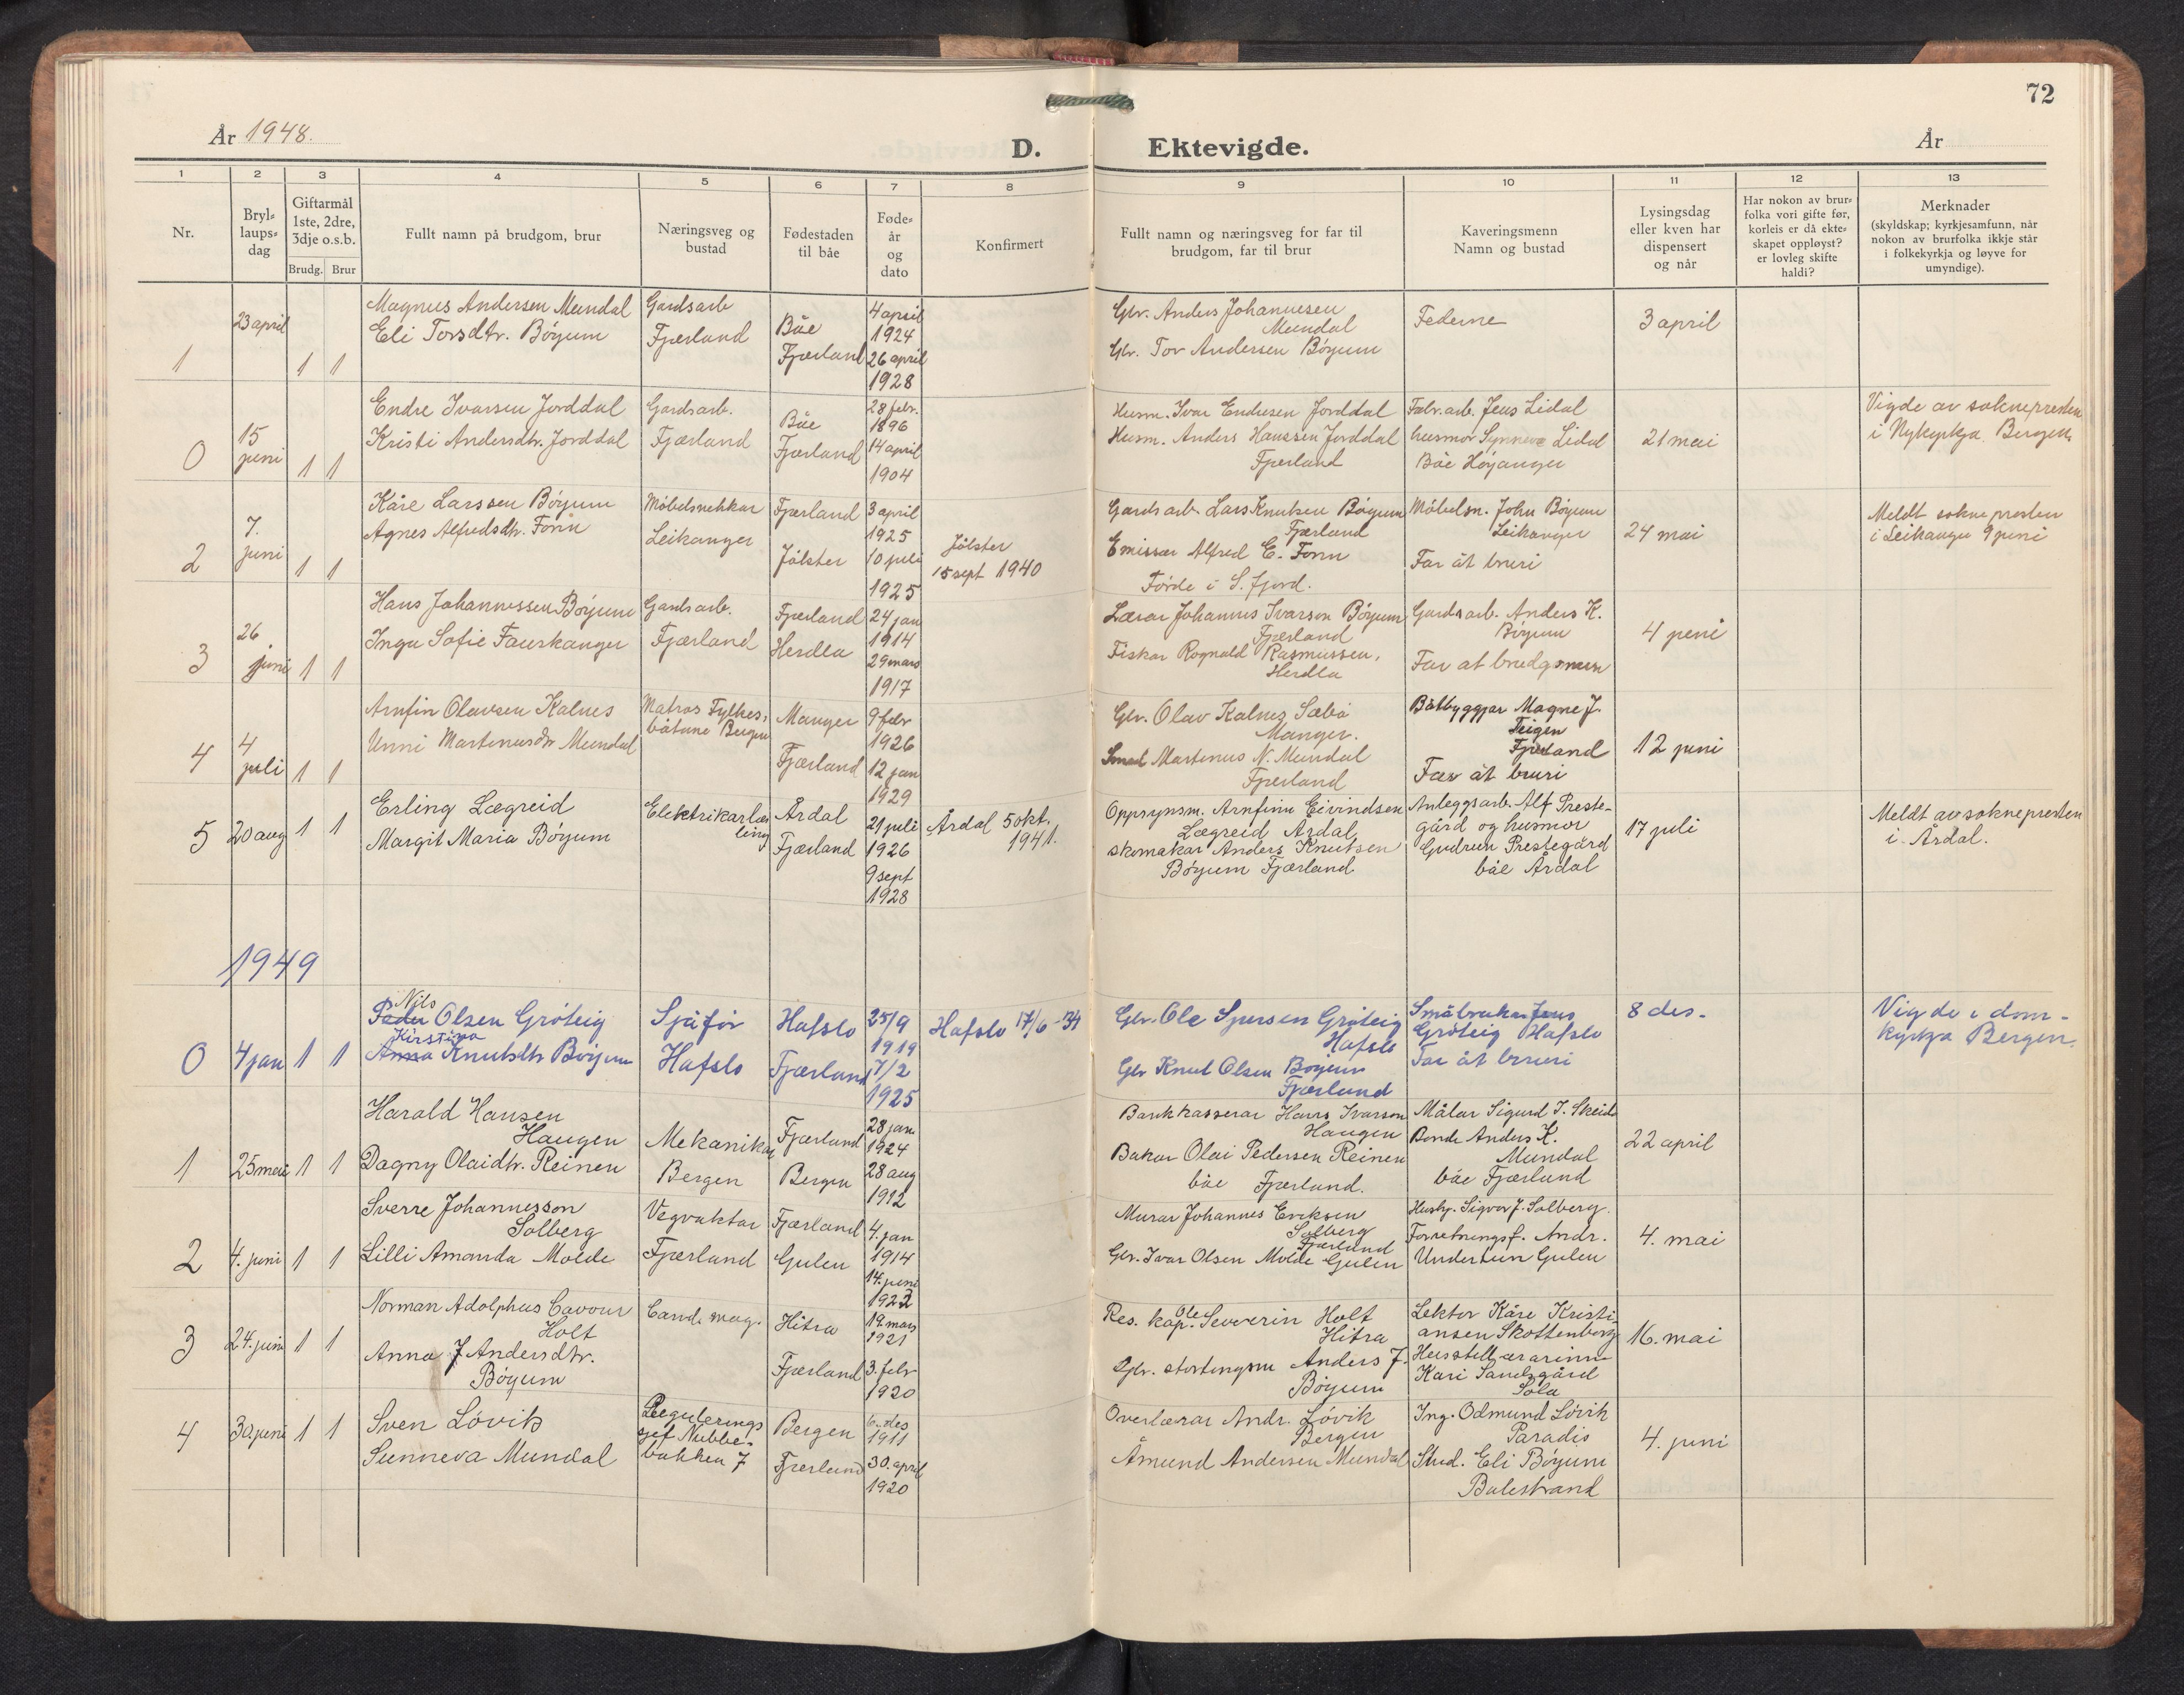 72
År 1948.
D. Ektevigde.
År
1 2 3 4 5 6 7 8 9 10 11 12 13
Nr.
Bryl-
laups-
dag
Giftarmål
1ste, 2dre,
3dje o.s.b.
Brudg. Brur
Fullt namn på brudgom, brur
Næringsveg og
bustad
Fødestaden
til båe
Føde-
år
og
dato
Konfirmert
Fullt namn og næringsveg for far til
brudgom, far til brur
Kaveringsmenn
Namn og bustad
Lysingsdag
eller kven har
dispensert
og når
Har nokon av brur-
folka vori gifte før,
korleis er då ekte-
skapet oppløyst?
er lovleg skifte
haldi?
Merknader
(skyldskap; kyrkjesamfunn, når
nokon av brurfolka ikkje står
i folkekyrkja og løyve for
umyndige).
1
23 april
1 1
Magnus Andersen Mundal
Eli Torsdtr. Bøyum
Gardsarb
Fjærland
Båe
Fjærland
4 april
1924
26 april
1928
Gbr. Anders Johannesen
Mundal
Gbr. Tor Andersen Bøyum
Federne
3 april
0
15
juni
1 1
Endre Ivarsen Jorddal
Kristi Andersdtr. Jorddal
Gardsarb.
Fjærland
Båe
Fjærland
28 febr.
1896
14 april
1904
Husm. Ivar Endresen Jorddal
Husm. Anders Hanssen Jorddal
Fjærland
Fabr.arb. Jens Lidal
husmor Synneve Lidal
Båe Høyanger
21 mai
Vigde av soknepresten
i Nykyrkja Bergen.
2
7.
juni
1 1
Kåre Larssen Bøyum
Agnes Alfredsdtr. Fonn
Møbelsnekkar
Leikanger
Fjærland
Jølster
3 april
1925
10 juli
1925
Jølster
15 sept 1940
Gardsarb. Lars Knutsen Bøyum
Fjærland
Emissær Alfred E. Fonn
Førde i S. fjord.
Møbelsn. John Bøyum
Leikanger
Far åt bruri
24 mai
Meldt soknepresten
i Leikanger 9 juni
3
26
juni
1 1
Hans Johannessen Bøyum
Inga Sofie Fauskanger
Gardsarb.
Fjærland
Fjærland
Herdla
24 jan
1914
29 mars
1917
Lærar Johannes Ivarson Bøyum
Fjærland
Fiskar Rognald Rasmussen,
Herdla
Gardsarb. Anders K.
Bøyum
Far åt brudgomen
4 juni
4
4
juli
1 1
Arnfin Olavsen Kalnes
Unni Martinusdtr Mundal
Matros Fylkes-
båtane Bergen
Manger
Fjærland
9 febr
1926
12 jan
1929
Gbr. Olav Kalnes Sæbø
Manger.
Smed Martinus N. Mundal
Fjærland
Båtbyggjar Magne J.
Teigen
Fjærland
Far åt bruri
12 juni
5
20 aug
1 1
Erling Lægreid
Margit Maria Bøyum
Elektrikarlær
ling
Årdal
Fjærland
21 juli
1926
9 sept
1928
Årdal 5 okt.
1941.
Oppsynsm. Arnfinn Eivindsen
Lægreid Årdal
skomakar Anders Knutsen
Bøyum Fjærland
Anleggsarb. Alf Preste-
gård og husmor
Gudrun Prestegård
båe Årdal
17 juli
Meldt av soknepresten
i Årdal.
1949
0
4 jan
1 1
Nils
Peder Olsen Grøteig
Kirstina
Anna Knutsdtr Bøyum
Sjåfør
Hafslo
Hafslo
Fjærland
25/9
1919
7/2
1925
Hafslo 17/6 -34
Gbr. Ole Sjursen Grøteig
Hafslo
Gbr Knut Olsen Bøyum
Fjærland
Småbrukar Jens
Grøteig Hafslo
Far åt bruri
8 des.
Vigde i dom-
kyrkja Bergen.
1
25 mai
1 1
Harald Hansen
Haugen
Dagny Olaidtr. Reinen
Mekanikar
Bergen
Fjærland
Bergen
28 jan
1924
28 aug
1912
Bankkasserar Hans Ivarson
Haugen
Bakar Olai Pedersen Reinen
båe Fjærland.
Målar Sigurd J. Skeide
Bonde Anders K.
Mundal
båe Fjærland
22 april
2
4. juni
1 1
Sverre Johannesson
Solberg
Lilli Amanda Molde
Vegvaktar
Fjærland
Fjærland
Gulen
4. jan
1914
14. juni
1922
Murar Johannes Eriksen
Solberg
Fjærland
Gbr. Ivar Olsen Molde Gulen
Husby. Sigvor J. Solberg.
Forretningsf. Andr.
Undertun Gulen
4. mai
3
24. juni
1 1
Norman Adolphus Cavour
Holt
Anna J Andersdtr.
Bøyum
Cand. mag.
Hitra
Fjærland
19 mars
1921
3. febr
1920
Res. kap. Ole Severin Holt
Hitra
Gbr. stortingsm Anders J.
Bøyum
Lektor Kåre Kristi-
ansen Skottenborg
Husstellærarinne
Kari Sandsgård
Sola
16. mai
4
30 juni
1 1
Sven Løvik
Sunneva Mundal
Regulerings
sjef Nubbe-
bakken 7
Bergen
Fjærland
6. des
1911
30. april
1920
Overlærar Andr. Løvik
Bergen
Åmund Andersen Mundal
Ing. Odmund Løvik
Paradis
Stud. Eli Bøyum
Balestrand
4. juni